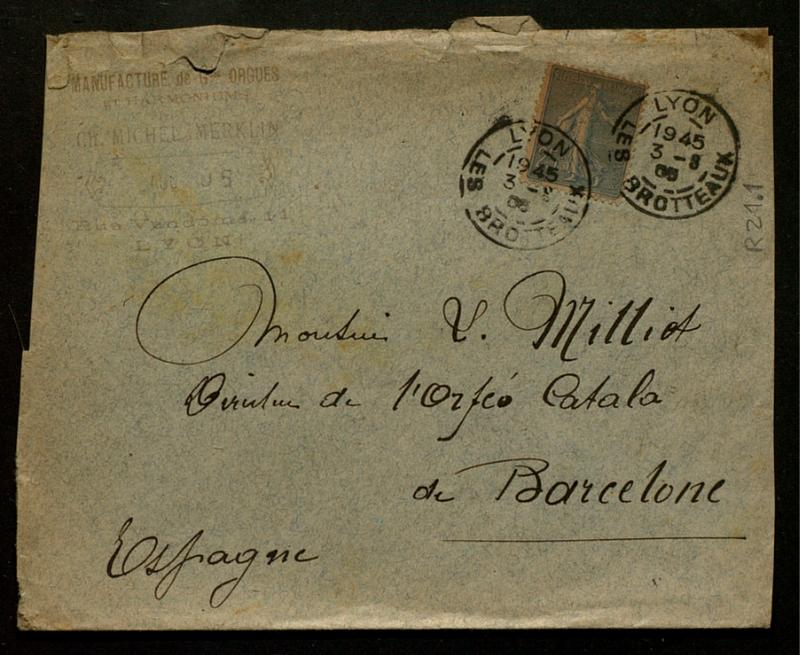 MANUFACTURE de Gdes ORGUES
ET HARMONIUMS
CH. MICHEL-MERKLIN
05
Rue Vendome, 11
LYON
LYON
1945
3 -8
05
LES BROTTEAUX
LYON
1945
3 -8
05
LES BROTTEAUX
R 21.1
Monsieur L. Milliot
Directeur de l'Orféo Catala
de Barcelone
Espagne